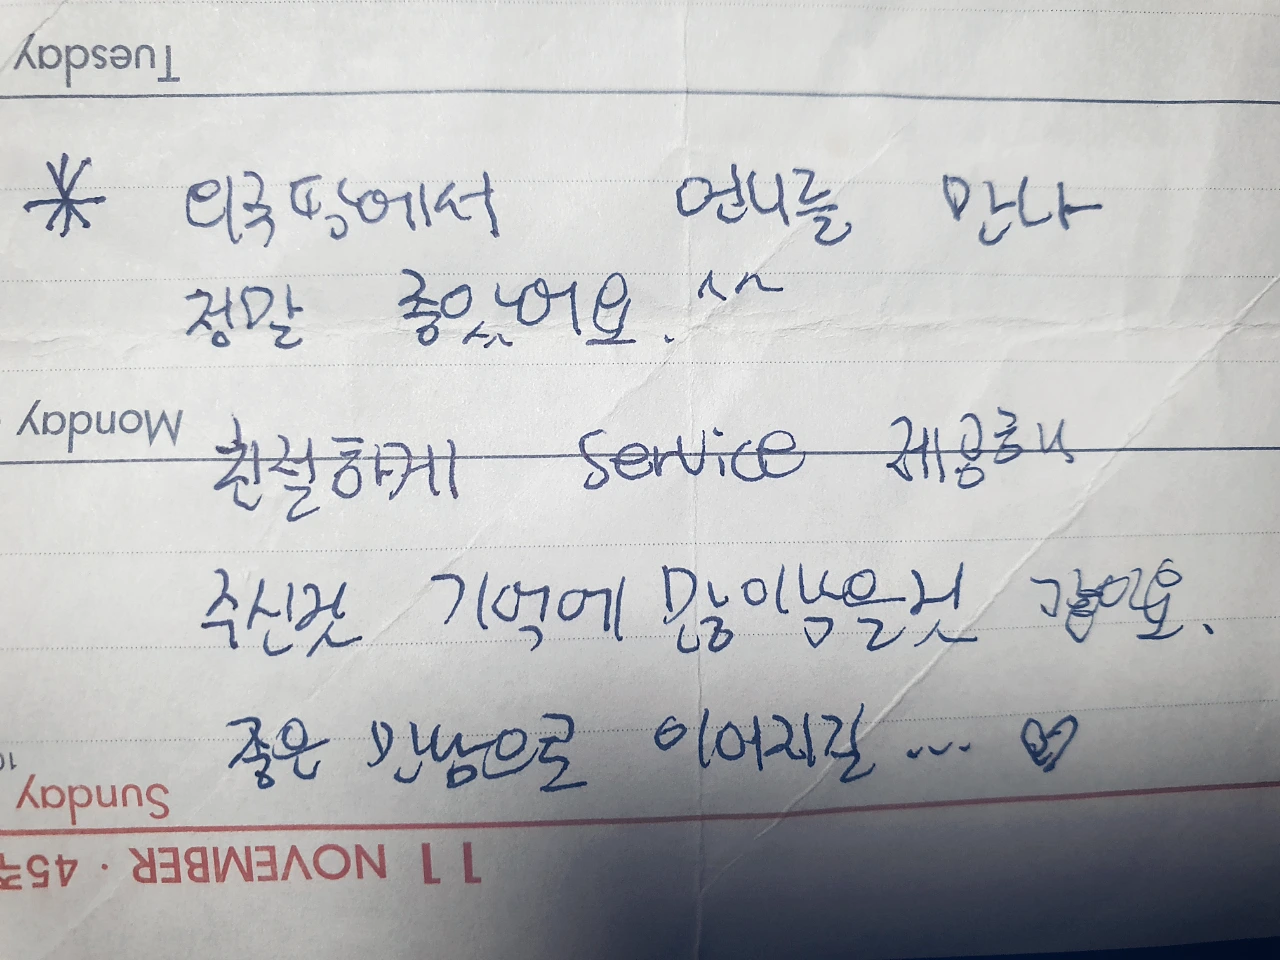 Tuesday
* 외국땅에서 언니를 만나
정말 좋았어요. ^^~
Monday
친절하게 Service 제공해
주신것 기억에 많이남을것 같아요.
좋은 만남으로 이어지길 ... ♡
Sunday
11 NOVEMBER · 45주